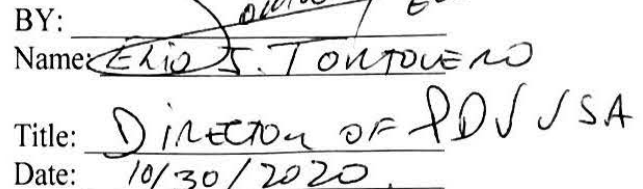 BY:
Name: Elio J. TORTOLERO
Title: DIRECTOR OF PDV USA
Date: 10/30/2020